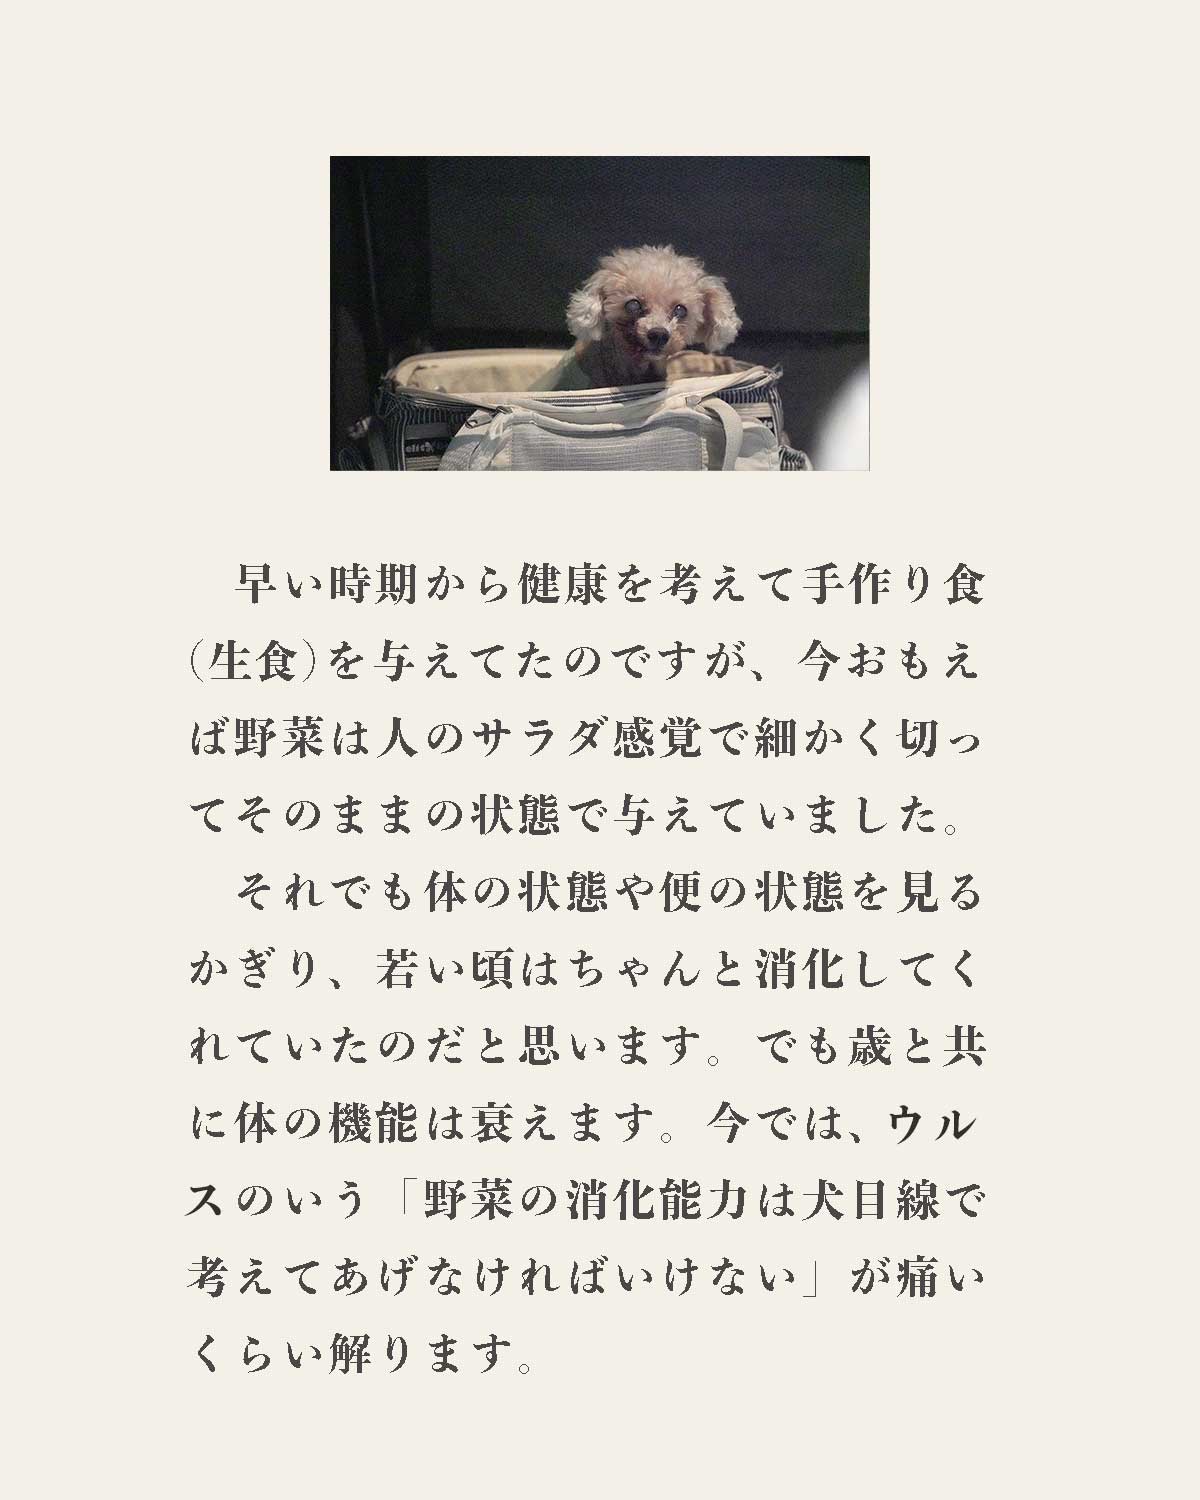 早い時期から健康を考えて手作り食
(生食)を与えてたのですが、今おもえ
ば野菜は人のサラダ感覚で細かく切っ
てそのままの状態で与えていました。
それでも体の状態や便の状態を見る
かぎり、若い頃はちゃんと消化してく
れていたのだと思います。でも歳と共
に体の機能は衰えます。今では、ウル
スのいう「野菜の消化能力は犬目線で
考えてあげなければいけない」が痛い
くらい解ります。